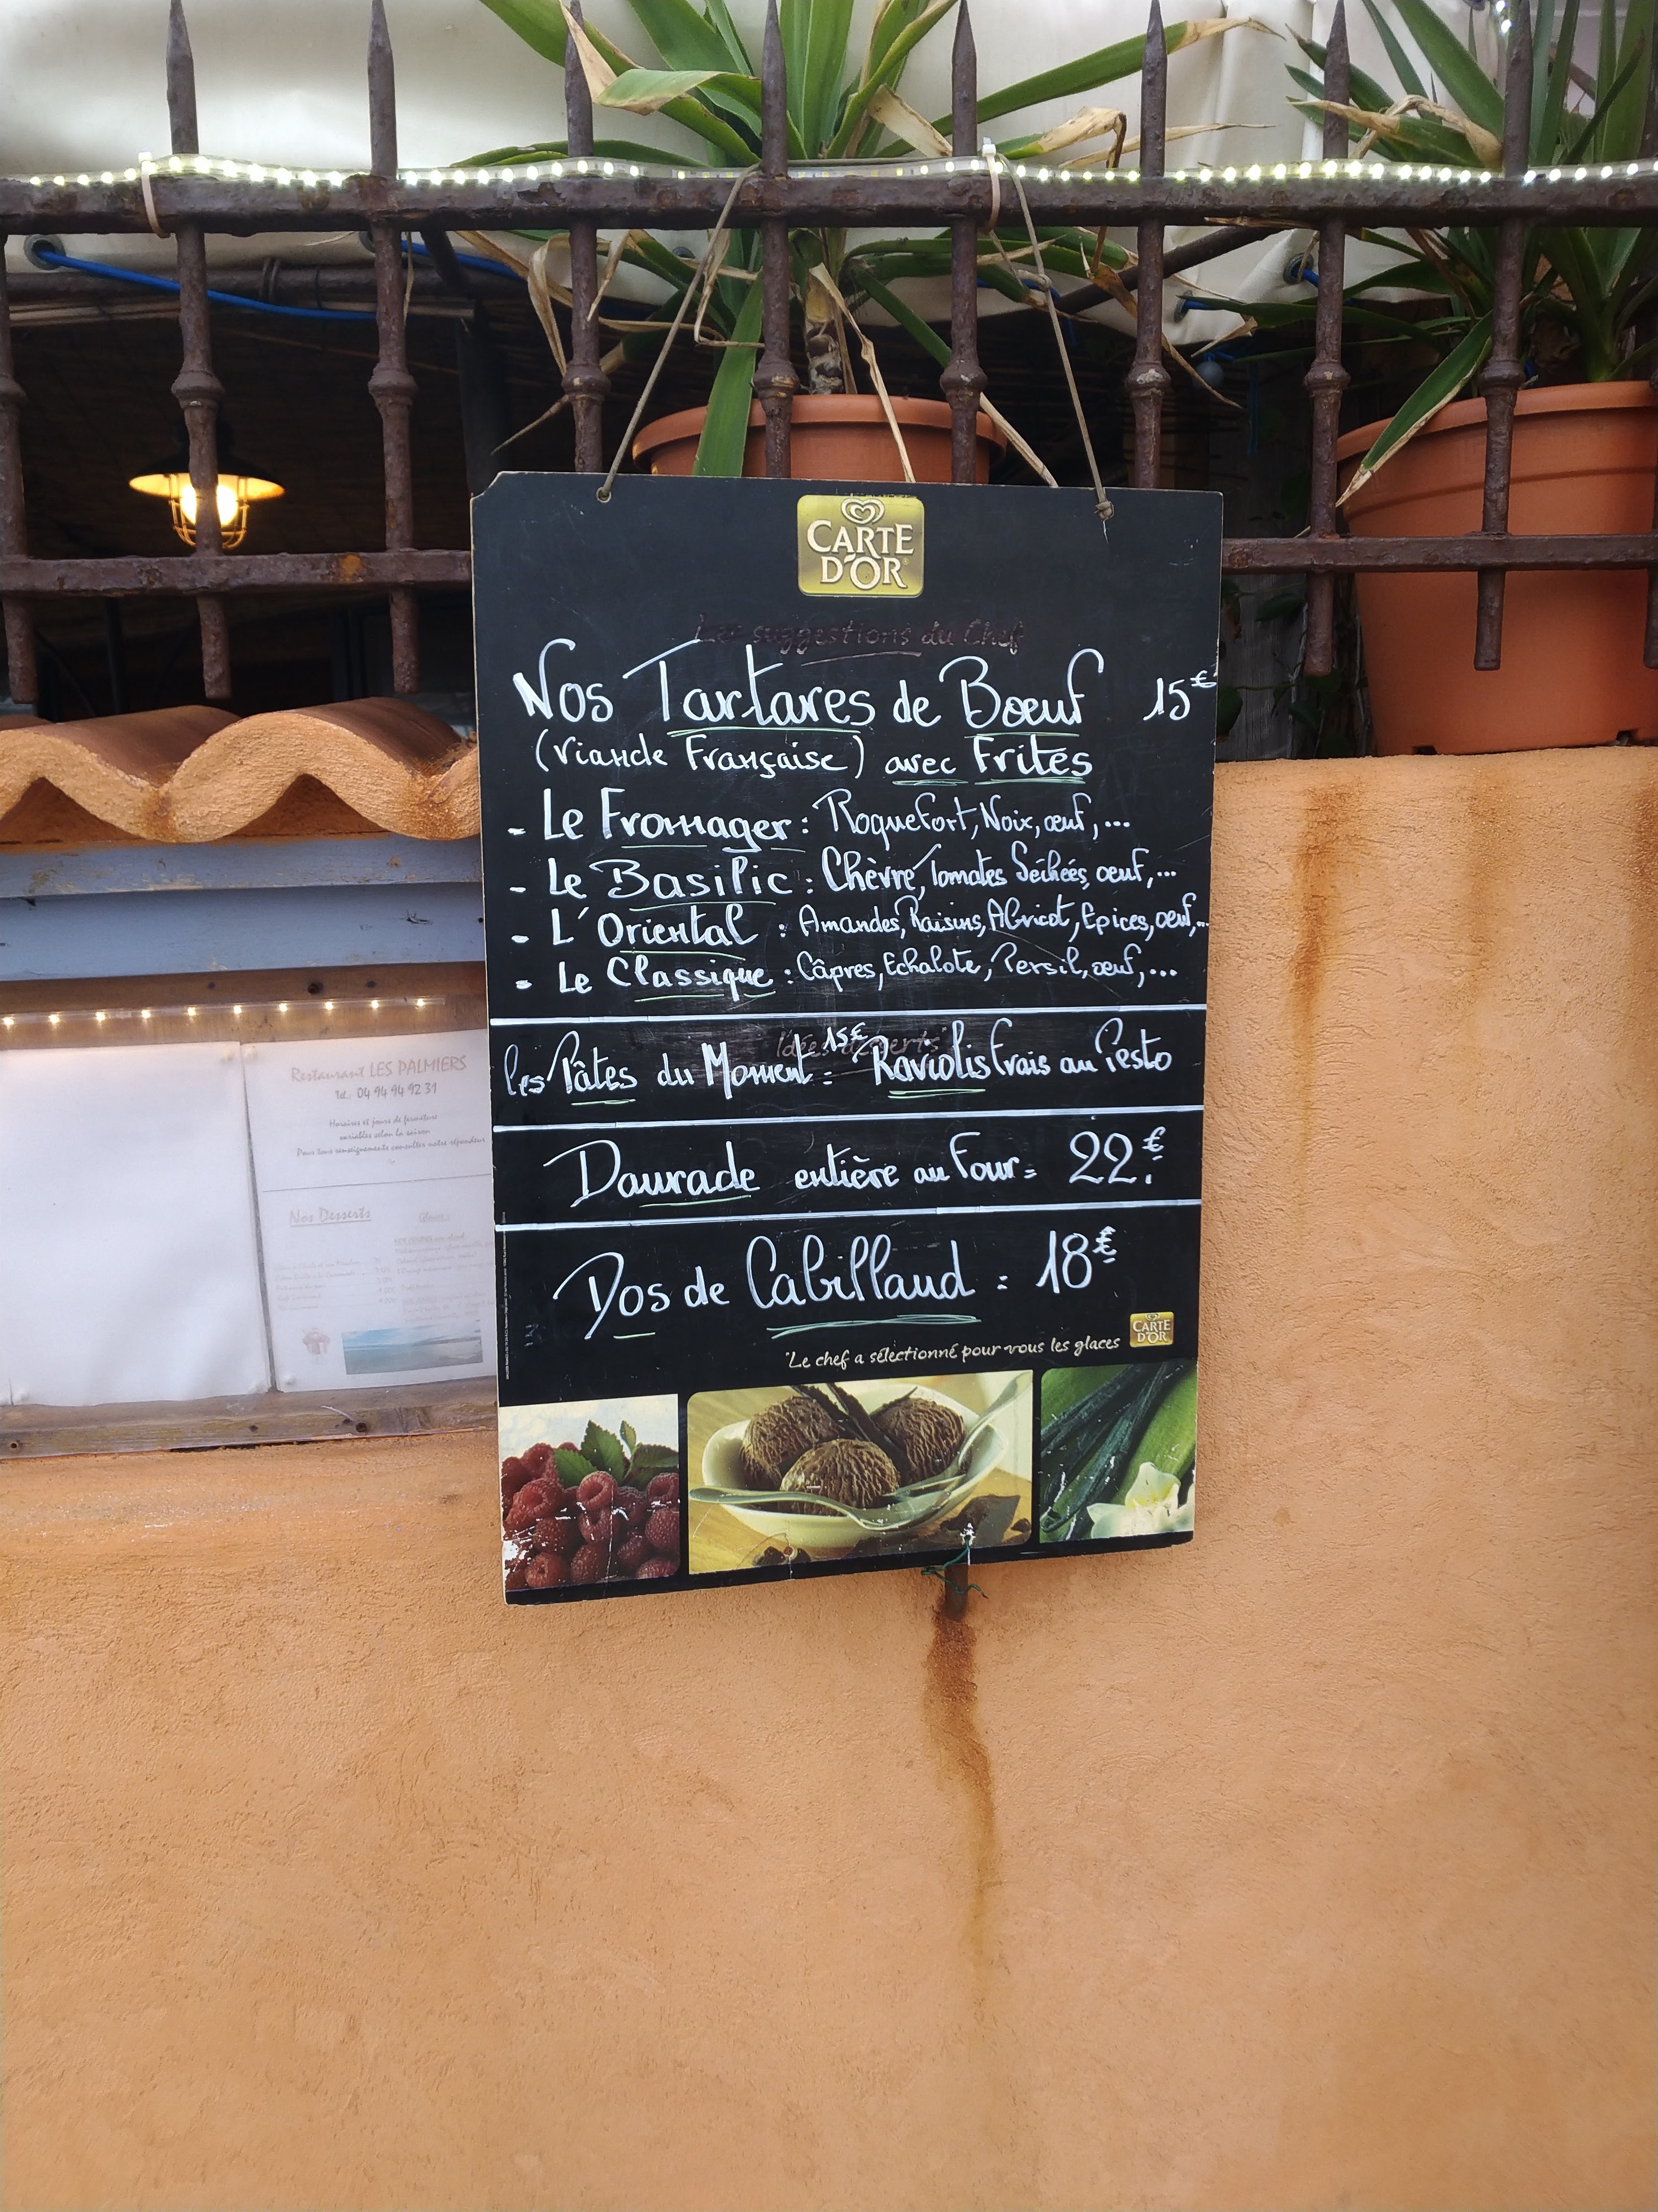 CARTE
D'OR
Les suggestions du Chef
Nos Tartares de Bœuf 15€
(Viande Française) avec Frites
- Le Fromager : Roquefort, Noix, œuf, ...
- Le Basilic : Chèvre, Tomates Séchées, œuf, ...
- L'Oriental : Amandes, Raisins, Abricot, Epices, œuf, ...
- Le Classique : Câpres, Echalote, Persil, œuf, ...
Idées desserts
15€
les Pâtes du Moment : Raviolis frais au Pesto
Daurade entière au Four = 22€
Dos de Cabillaud = 18€
"Le chef a sélectionné pour vous les glaces
CARTE
D'OR
Restaurant LES PALMIERS
Tél. 04 94 94 92 31
Horaires et jours de fermeture
variables selon la saison
Pour tous renseignements consulter notre répondeur
Nos Desserts